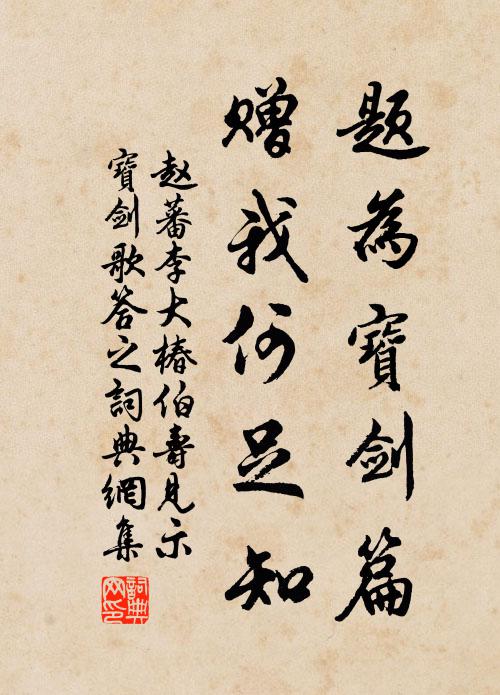 題為寶劍篇
贈我何足知
赵蕃李大椿伯壽見示
寶劍歌答之詞典網集
詞典
网印